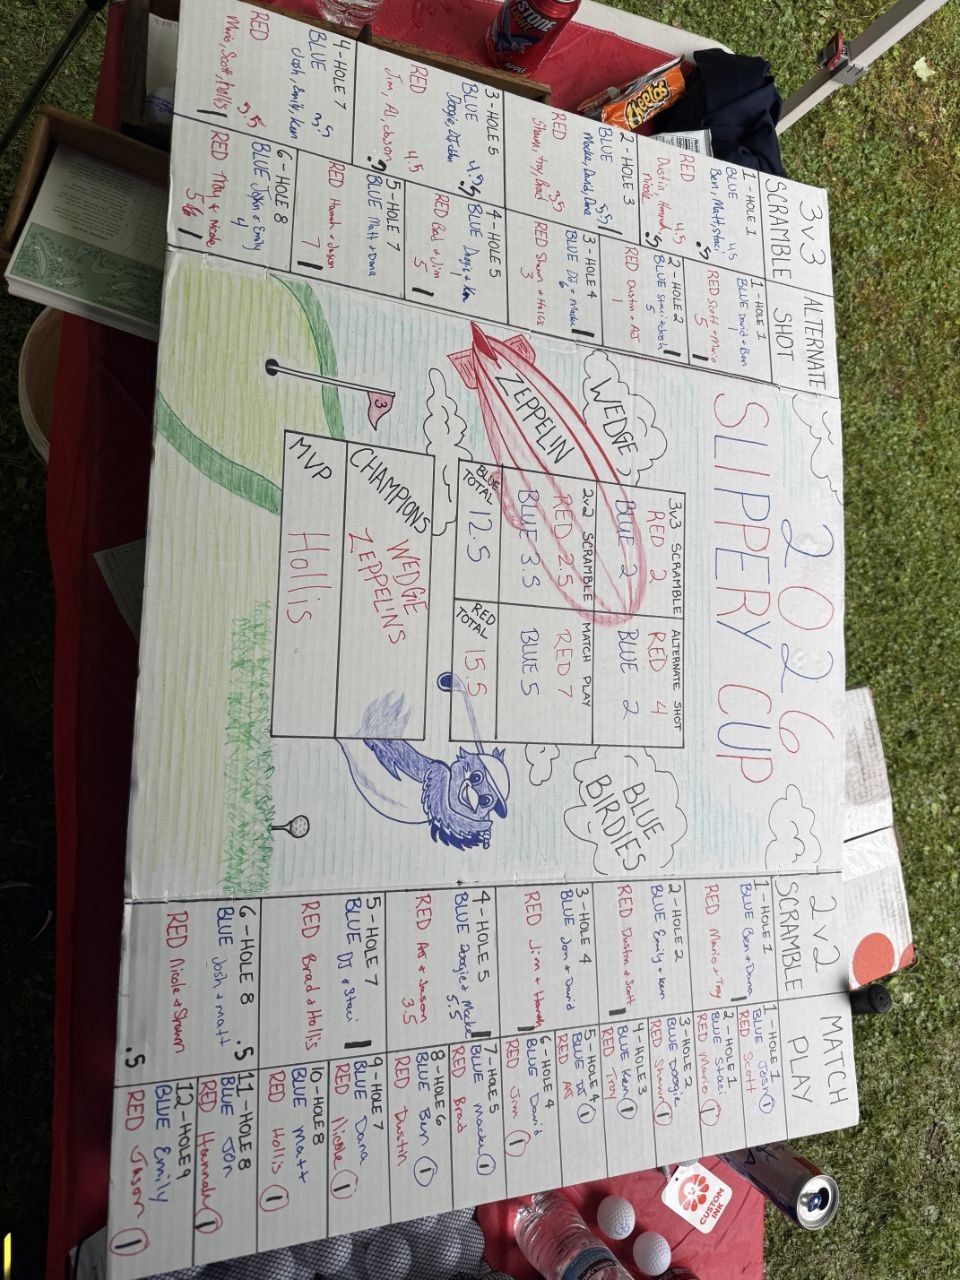 2026
SLIPPERY CUP
WEDGE
ZEPPELIN
BLUE
BIRDIES
3v3 SCRAMBLE
RED 2
BLUE 2
ALTERNATE SHOT
RED 4
BLUE 2
2v2 SCRAMBLE
RED 2.5
BLUE 3.5
MATCH PLAY
RED 7
BLUE 5
BLUE TOTAL 12.5
RED TOTAL 15.5
CHAMPIONS
WEDGE
ZEPPELINS
MVP
Hollis
3
3v3
SCRAMBLE
1-HOLE 1
BLUE 4.5
Ben, Matt, Staci .5
RED 4.5
Dustin, Hannah, Nicole .5
2-HOLE 3
BLUE 3.5
RED 3.5
Shawn, Troy, Brad
3-HOLE 5
BLUE 4.5
.5
RED 4.5
Jim, AJ, Jason .5
4-HOLE 7
BLUE
Josh, Emily, Ken
RED 3.5
Mario, Scott, Hollis 1
ALTERNATE
SHOT
1-HOLE 1
BLUE David + Ben
7
RED Scott + Mario
5 1
2-HOLE 2
BLUE Staci + Josh
5 1
RED Dustin + AJ
1
3-HOLE 4
BLUE DJ + Mackie
6 1
RED Shawn + Hollis
3
4-HOLE 5
BLUE Doogie + Ken
1
RED Brad + Jim
5 1
5-HOLE 7
BLUE Matt + Dana
RED Hannah + Jason
7 1
6-HOLE 8
BLUE Jon + Emily
4
RED Troy + Nicole
1
2v2
SCRAMBLE
1-HOLE 1
BLUE Ben + Dana 1
RED Mario + Troy
2-HOLE 2
BLUE Emily + Ken
RED Dustin + Scott 1
3-HOLE 4
BLUE Jon + David
RED Jim + Hannah 1
4-HOLE 5
BLUE Doogie + Mackie 1
5.5
RED AJ + Jason
3.5
5-HOLE 7
BLUE DJ + Staci 1
RED Brad + Hollis
6-HOLE 8
BLUE Josh + Matt .5
RED Nicole + Shawn
.5
MATCH
PLAY
1-HOLE 1
BLUE Josh 1
RED Scott
2-HOLE 1
BLUE Staci
RED Mario 1
3-HOLE 2
BLUE Doogie
RED Shawn 1
4-HOLE 3
BLUE Ken 1
RED Troy
5-HOLE 4
BLUE DJ 1
RED AJ
6-HOLE 4
BLUE David
RED Jim 1
7-HOLE 5
BLUE Mackie 1
RED Brad
8-HOLE 6
BLUE Ben 1
RED Dustin
9-HOLE 7
BLUE Dana
RED Nicole 1
10-HOLE 8
BLUE Matt
RED Hollis 1
11-HOLE 8
BLUE Jon
RED Hannah 1
12-HOLE 9
BLUE Emily
RED Jason 1
STONE
APPLE
Cheetos
CUSTOM
INK